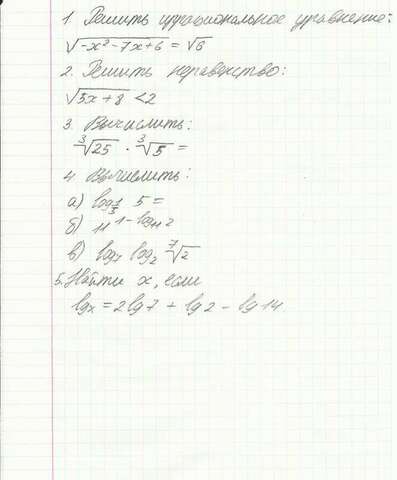 1. Решить иррациональное уравнение:
√-x²-7x+6 = √6
2. Решить неравенство:
√5x+8 < 2
3. Вычислить:
∛25 · ∛5 =
4. Вычислить:
а) log 1/3 5 =
б) 11^(1-log₁₁2)
в) log₇ log₂ ⁷√2
5. Найти x, если
lgx = 2lg7 + lg2 - lg14